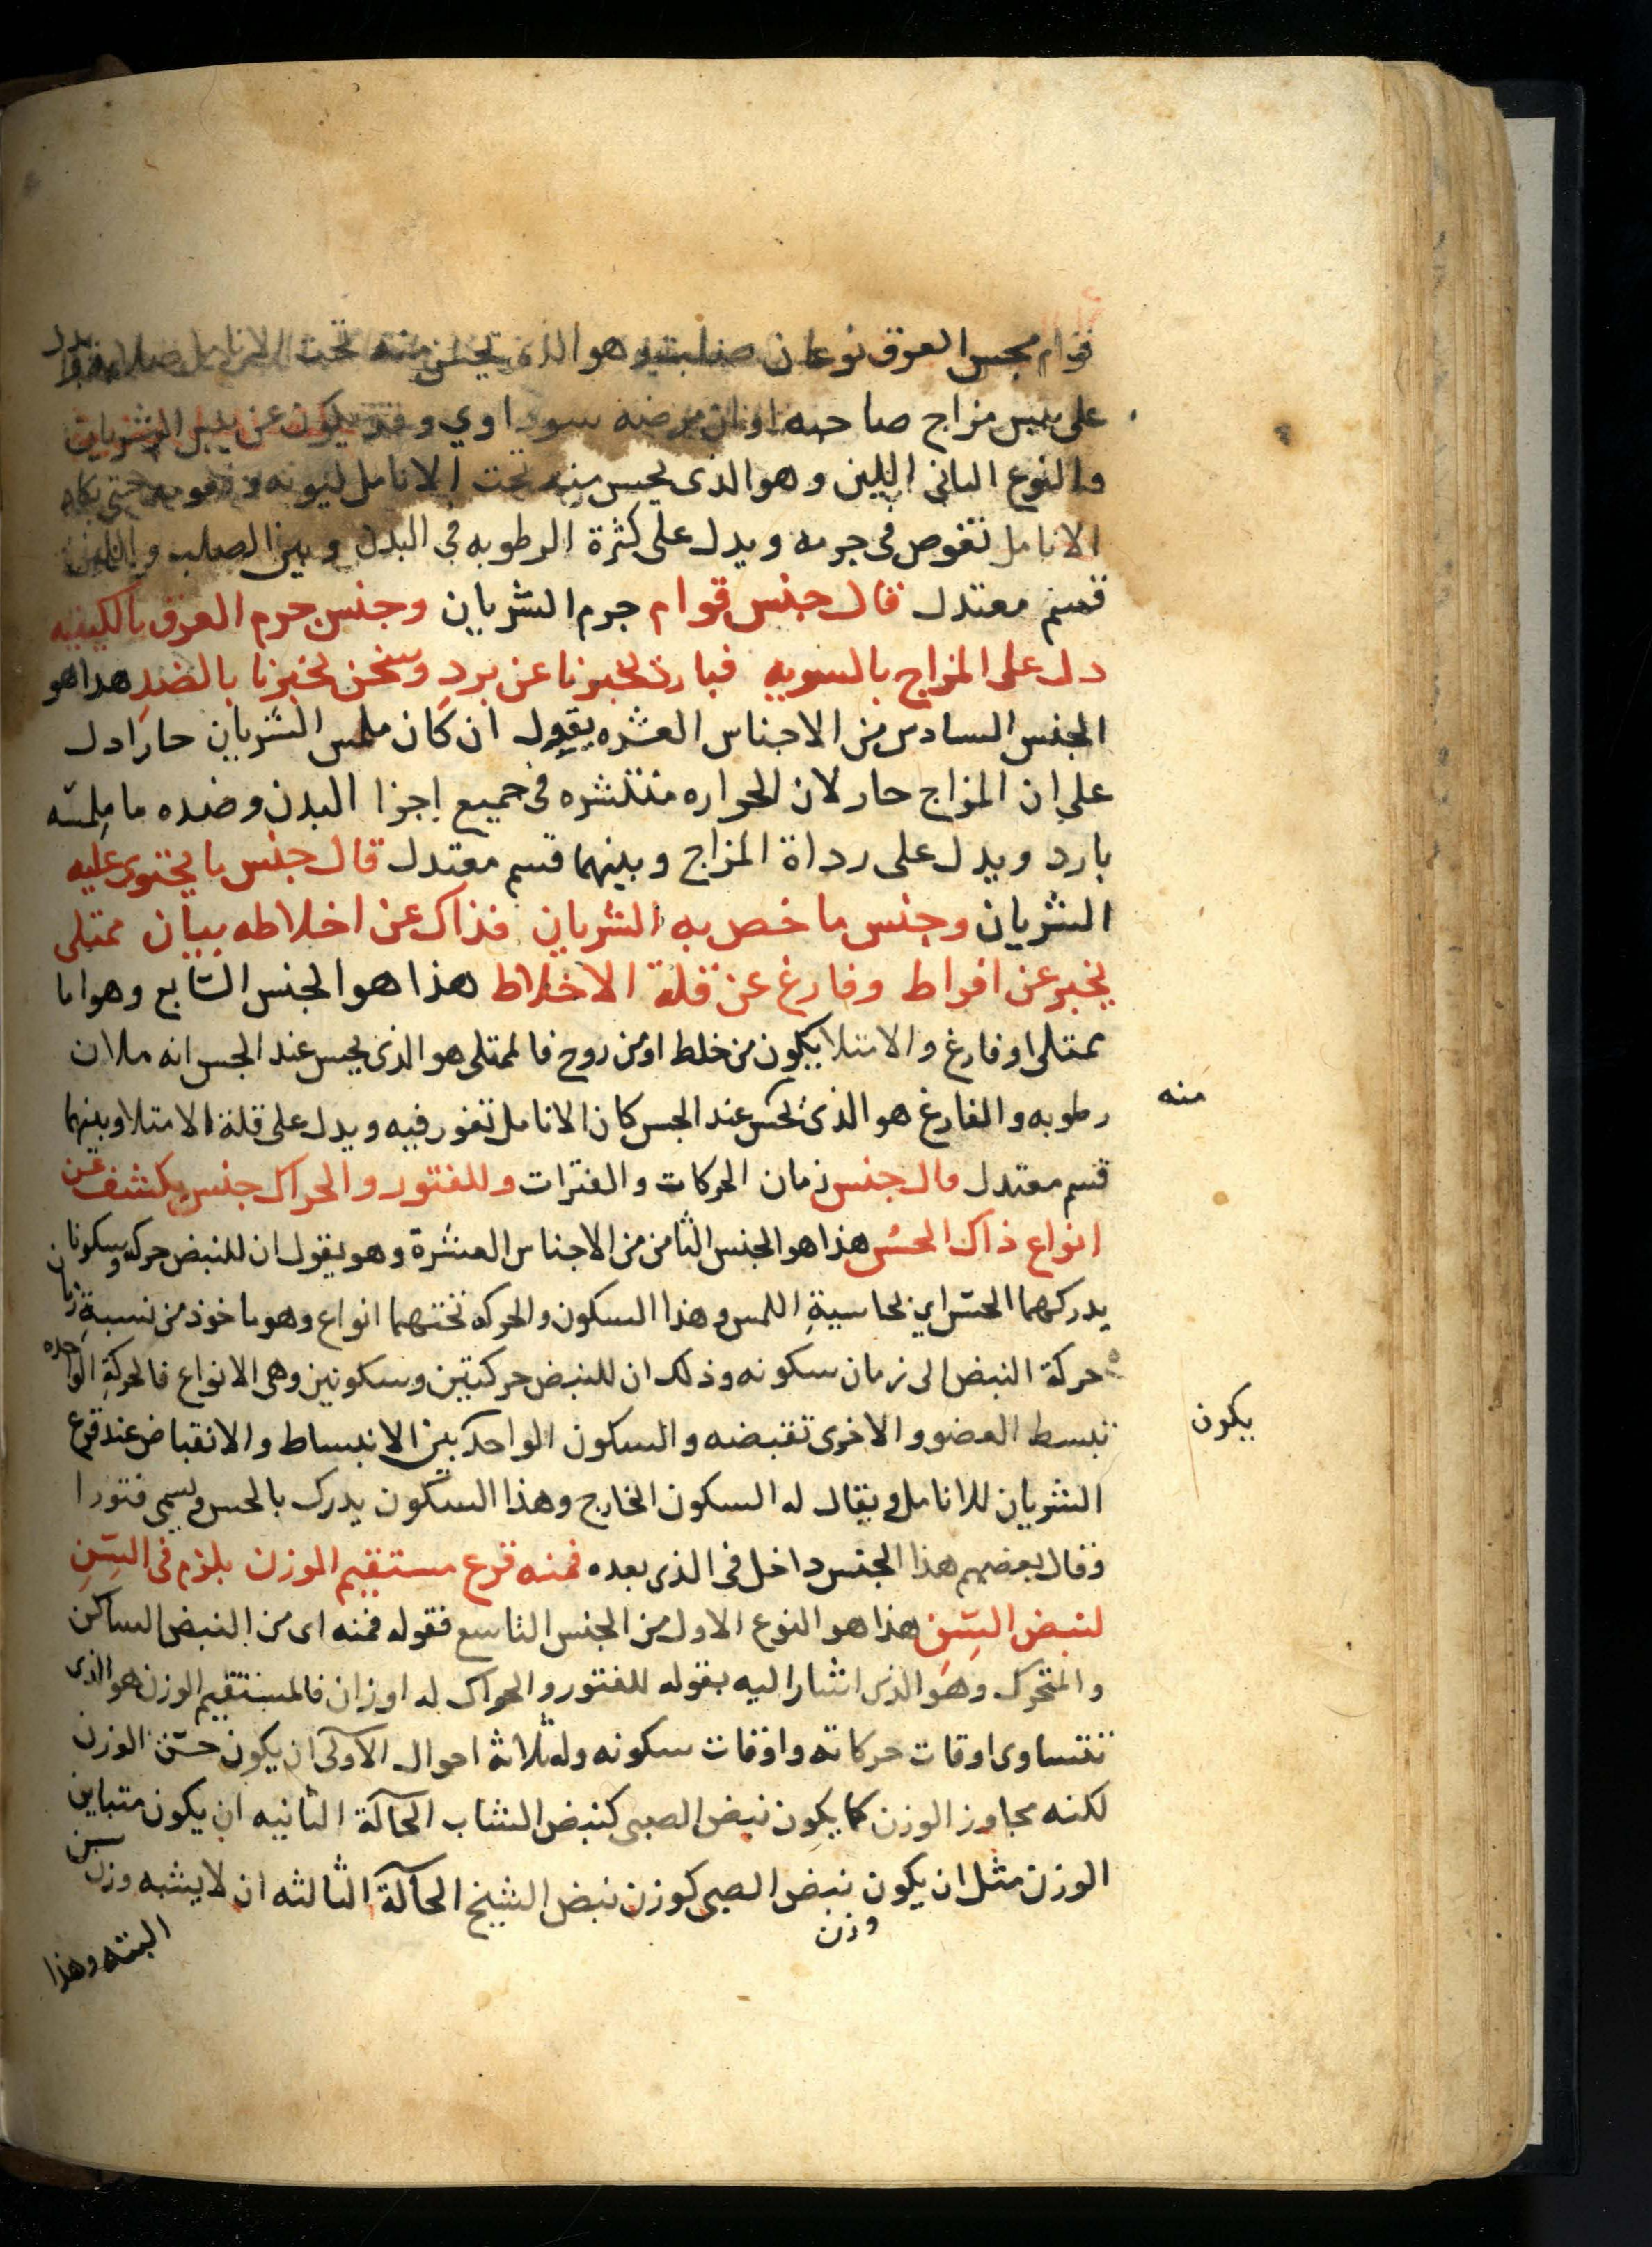 قوام مجس العرق نوعان صلب وهو الذي تحت الانامل
على يبس مزاج صاحبه او ان مرضه سوداوي وقد يكون عن يبس الشريان
والنوع الثانى اللين وهو الذى يحس منه تحت الانامل ليونه ونعومه حتى كان
الانامل تغوص فى جرمه ويدل على كثرة الرطوبه فى البدن وبين الصلب واللين
قسم معتدل قال جنس قوام جرم الشريان وجنس جرم العرق بالكيفيه
دل على المزاج بالسويه فبارد يخبرنا عن برد وسخن يخبرنا بالضد هذا هو
الجنس السادس من الاجناس العشره يقول ان كان ملمس الشريان حارا دل
على ان المزاج حار لان الحراره منتشره فى جميع اجزا البدن وضده ما ملمسه
بارد ويدل على رداة المزاج وبينهما قسم معتدل قال جنس ما يحتوى عليه
الشريان وجنس ما خص به الشريان فذاك عن اخلاطه بيان ممتلى
يخبر عن افراط وفارغ عن قلة الاخلاط هذا هو الجنس السابع وهو اما
ممتلى او فارغ والامتلا يكون من خلط او من روح فالممتلى هو الذى يحس عند الجس انه ملان
منه
رطوبه والفارغ هو الذى يحس عند الجس كان الانامل تغور فيه ويدل على قلة الامتلا وبينهما
قسم معتدل قال جنس زمان الحركات والفترات وللفتور والحراك جنس يكشف عن
انواع ذاك الحس هذا هو الجنس الثامن من الاجناس العشرة وهو يقول ان للنبض حركه وسكونان
يدركهما الحس اي بحاسية اللمس وهذا السكون والحركه تحتهما انواع وهو ماخوذ من نسبة زمان
حركة النبض الى زمان سكونه وذلك ان للنبض حركتين وسكونين وهى الانواع فالحركة الواحده
تبسط العضو والاخرى تقبضه والسكون الواحد بين الانبساط والانقباض عند قرع
يكون
الشريان للانامل ويقال له السكون الخارج وهذا السكون يدرك بالحس ويسمى فتورا
وقال بعضهم هذا الجنس داخل فى الذى بعده فمنه قرع مستقيم الوزن يلزم فى السن
لنبض السن هذا هو النوع الاول من الجنس التاسع فقوله فمنه اى من النبض الساكن
والمتحرك وهو الذى اشار اليه بقوله للفتور والحراك له اوزان فالمستقيم الوزن هو الذى
تتساوى اوقات حركاته واوقات سكونه وله ثلاثة احوال الاولى ان يكون حسن الوزن
لكنه مجاوز الوزن كما يكون نبض الصبى كنبض الشاب الحالة الثانيه ان يكون متباين
الوزن مثل ان يكون نبض الصبى كوزن نبض الشيخ الحالة الثالثه ان لا يشبه وزن سن
وزن
البته وهذا